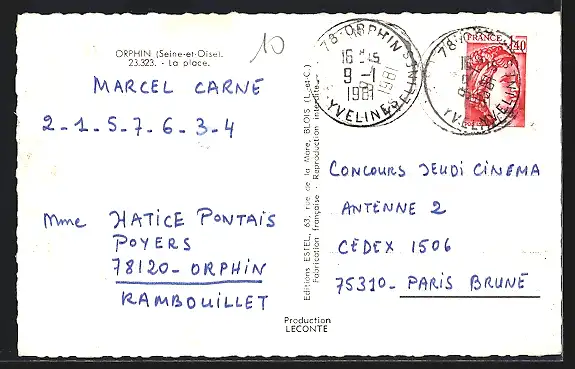 ORPHIN (Seine-et-Oise).
23.323. - La place.
10
MARCEL CARNÉ
2-1-5-7-6-3-4
Mme HATICE PONTAIS
POYERS
78120-ORPHIN
RAMBOUILLET
Editions ESTEL, 63, rue de la Mare, BLOIS (L.-et-C.)
Fabrication française - Reproduction interdite
Production
LECONTE
78-ORPHIN
16 H45
9-1
1981
YVELINES
FRANCE
1,40
CONCOURS JEUDI CINEMA
ANTENNE 2
CEDEX 1506
75310-PARIS BRUNE